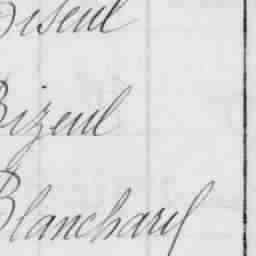 Biseul
Bizeul
Blanchard